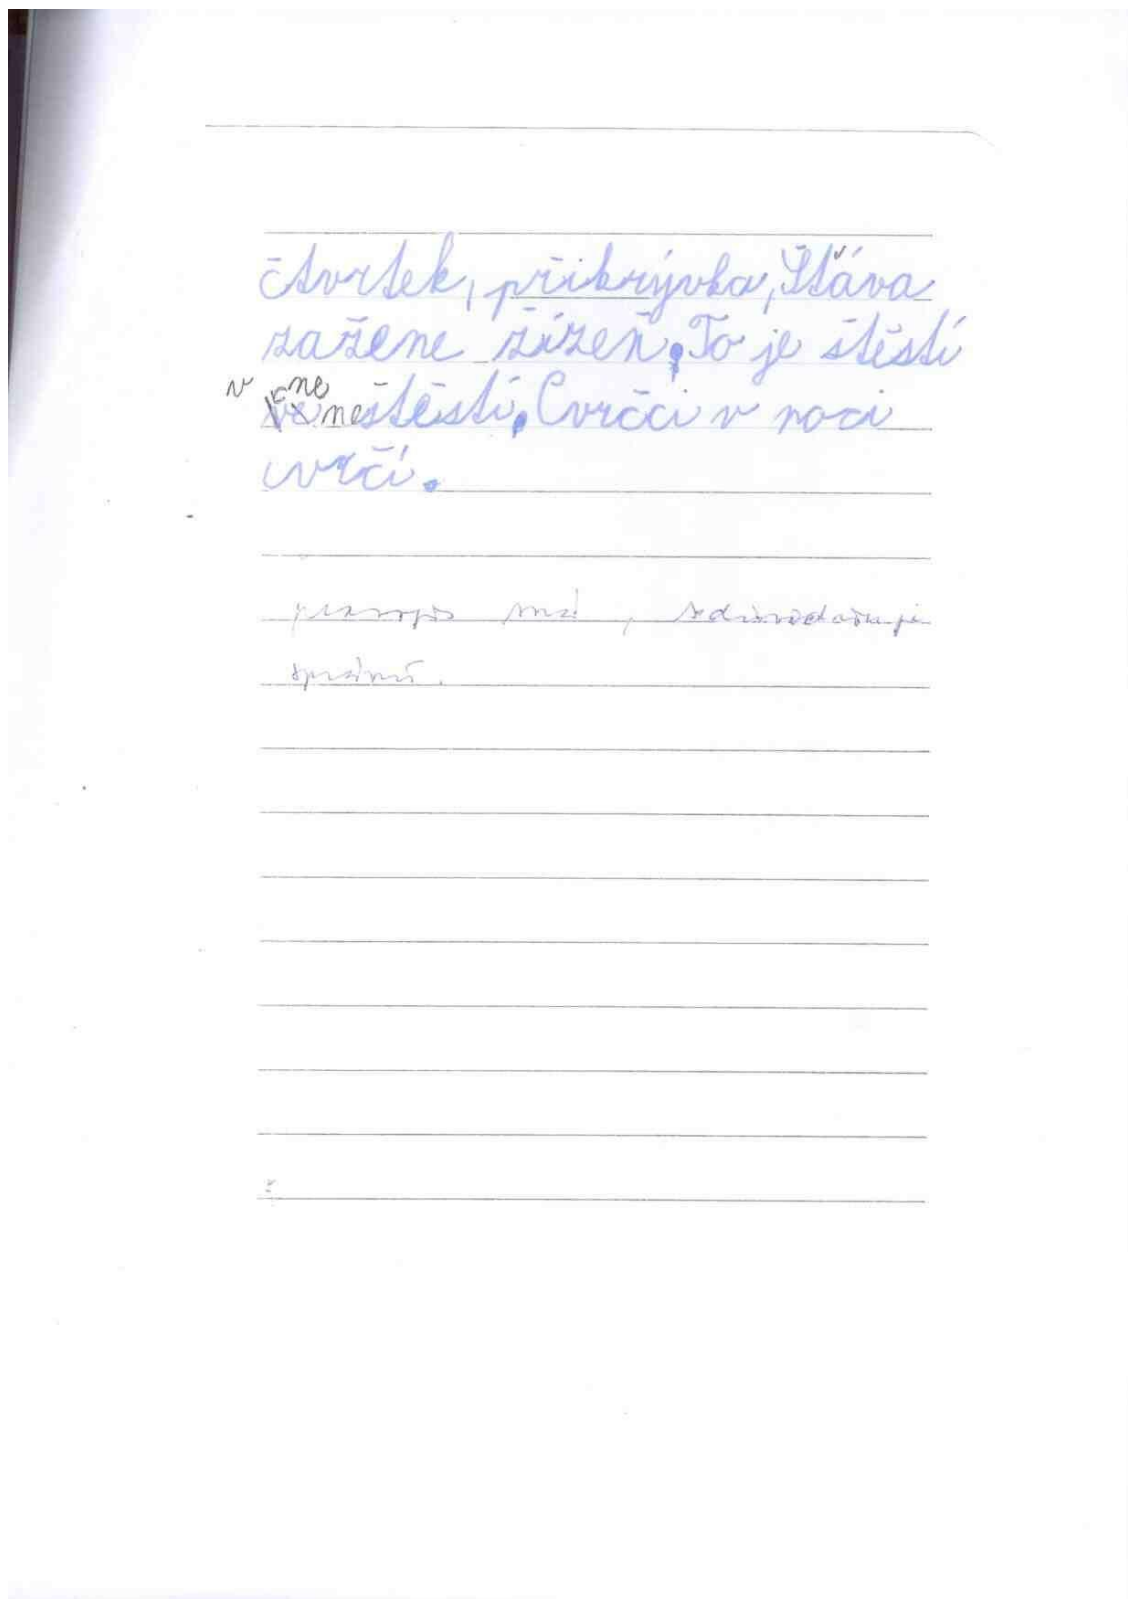 čtvrtek, přikrývka, Šťáva
zažene žízeň. To je štěstí
v ne
neštěstí. Cvrčci v noci
cvrčí.
pravopis zná, zdůvodňuje
správně.